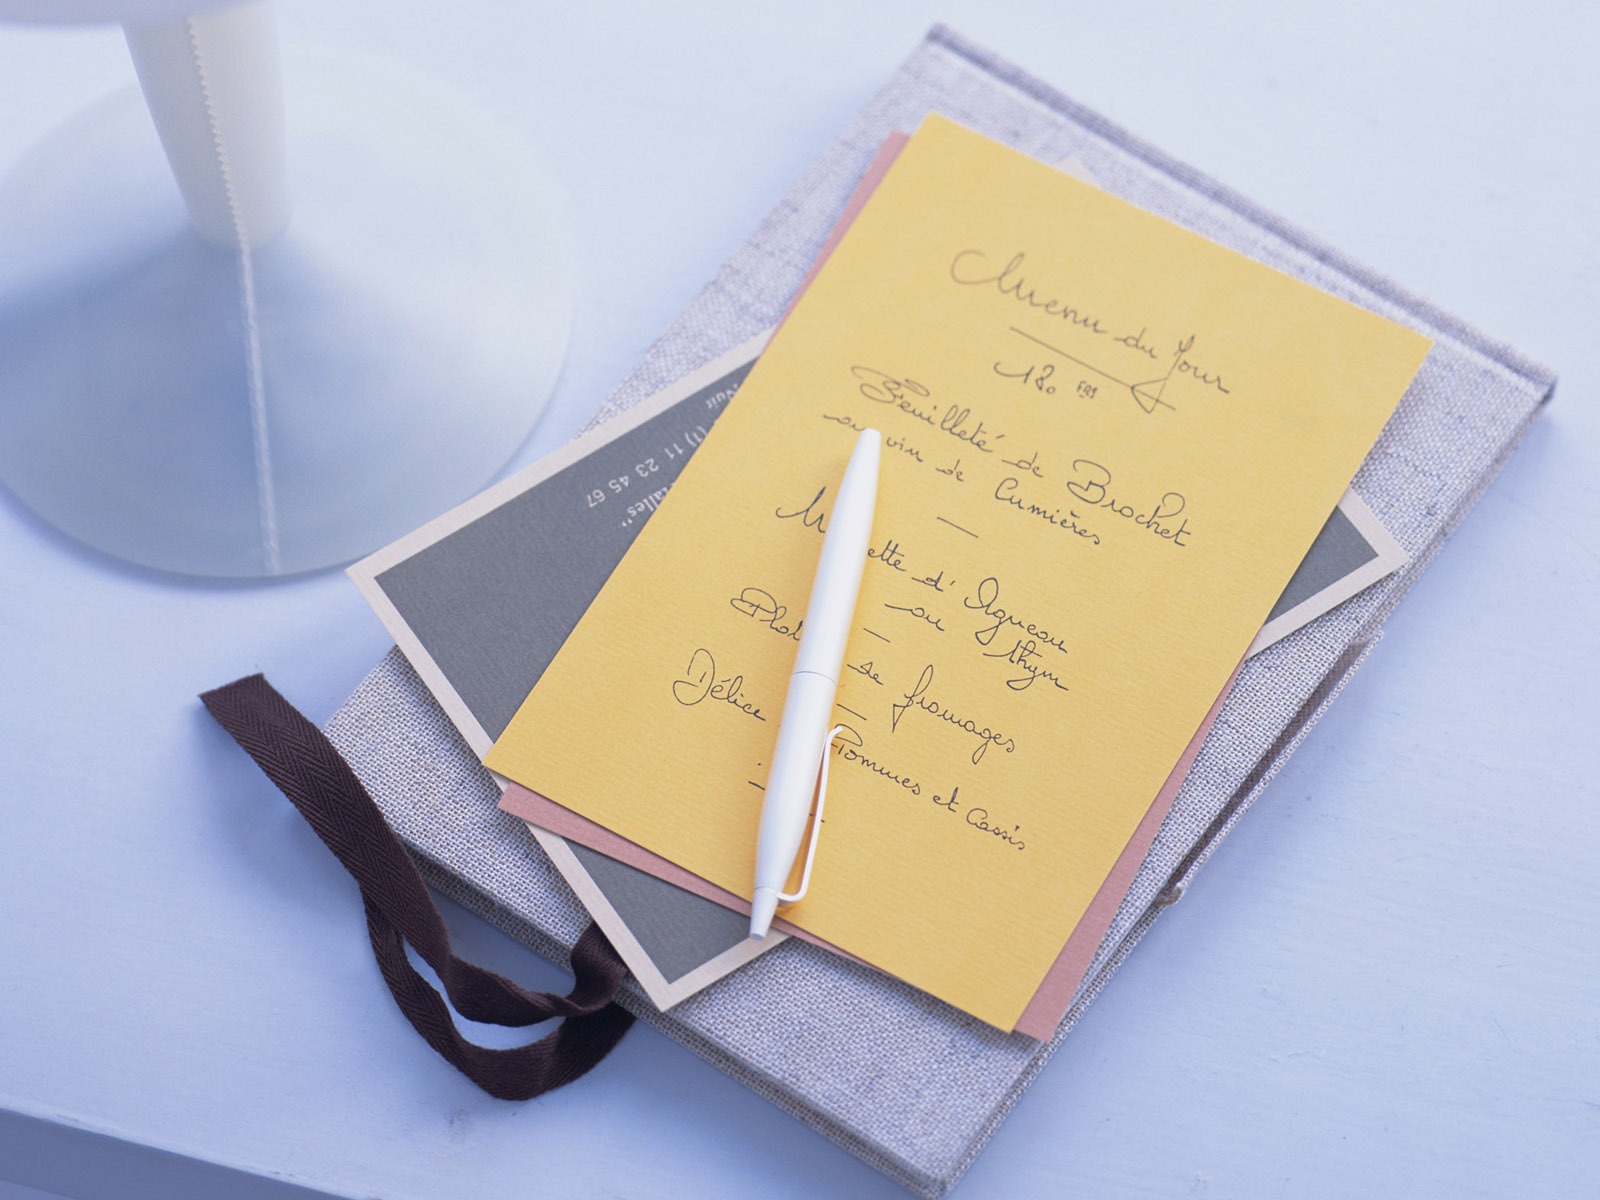 Menu du Jour
180 FRS
Feuilleté de Brochet
au vin de Cumières
d'Agneau
au thym
fromages
Délice Pommes et Cassis
(1) 11 23 45 67